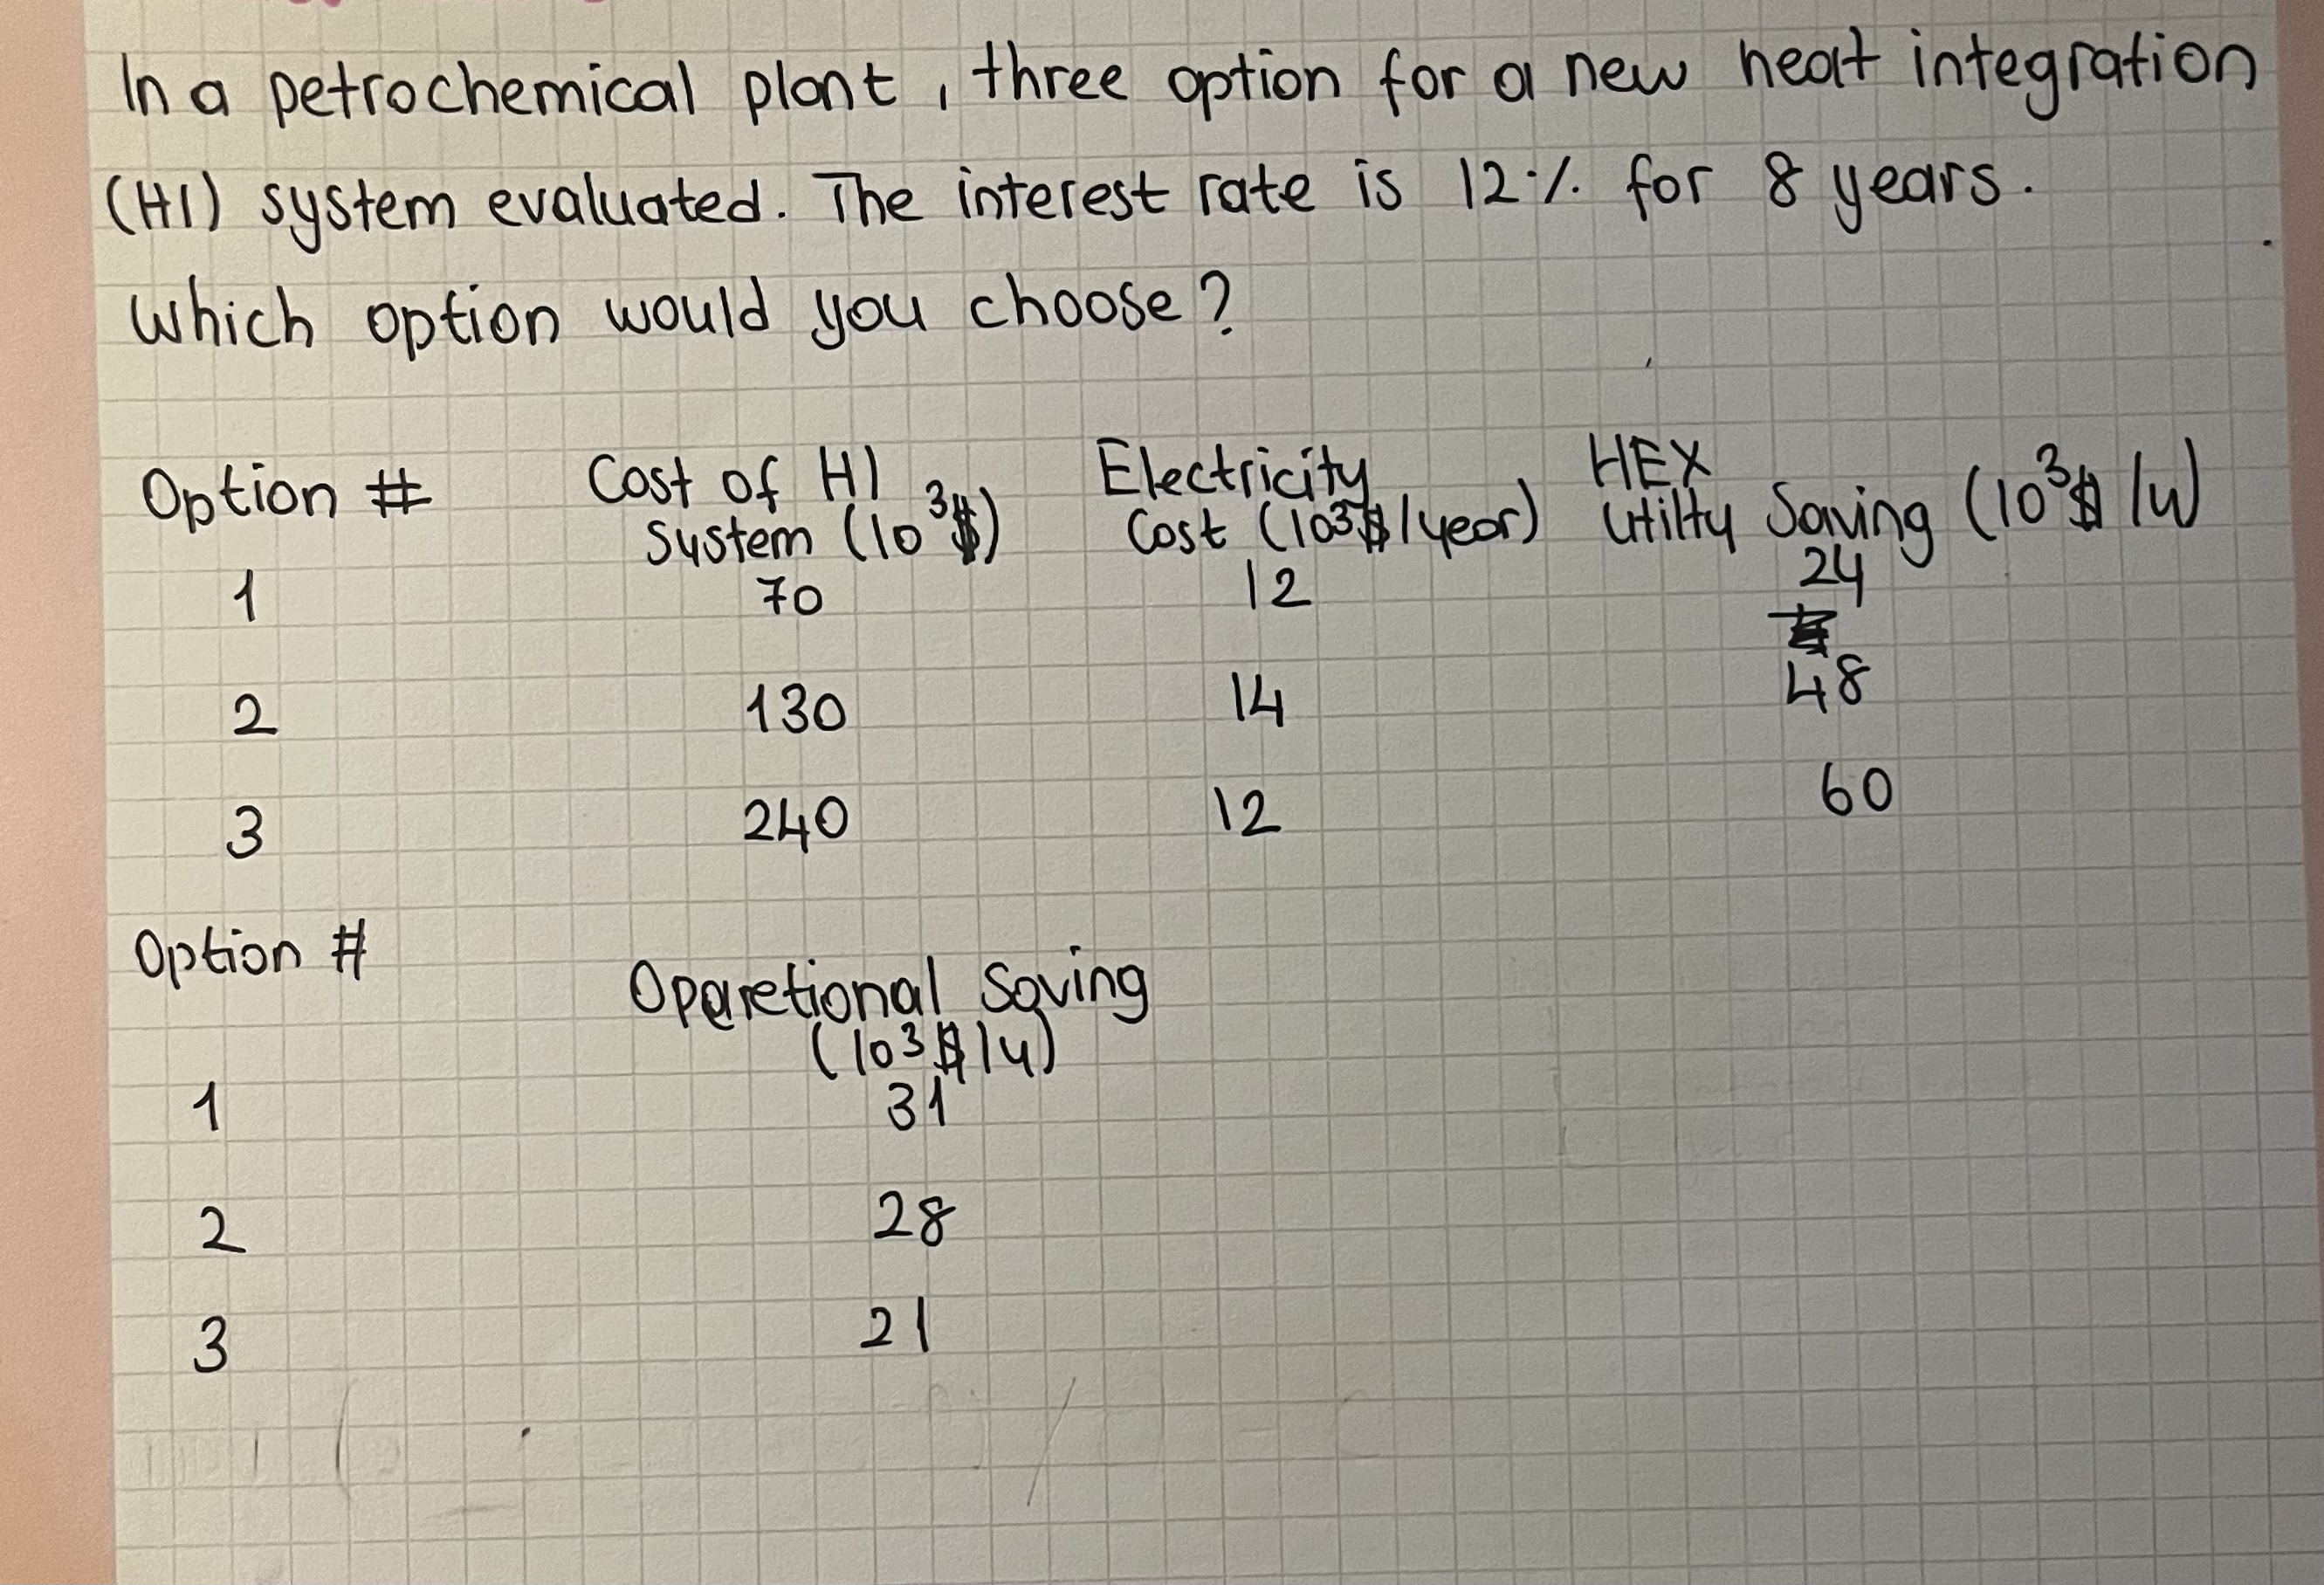 In a petrochemical plant, three option for a new heat integration
(HI) system evaluated. The interest rate is 12% for 8 years.
Which option would you choose?
Option # Cost of HI System (10³$) Electricity Cost (10³$/year) HEX Utilty Saving (10³$/y)
1 70 12 24
2 130 14 48
3 240 12 60
Option # Oparetional Saving (10³$/y)
1 31
2 28
3 21